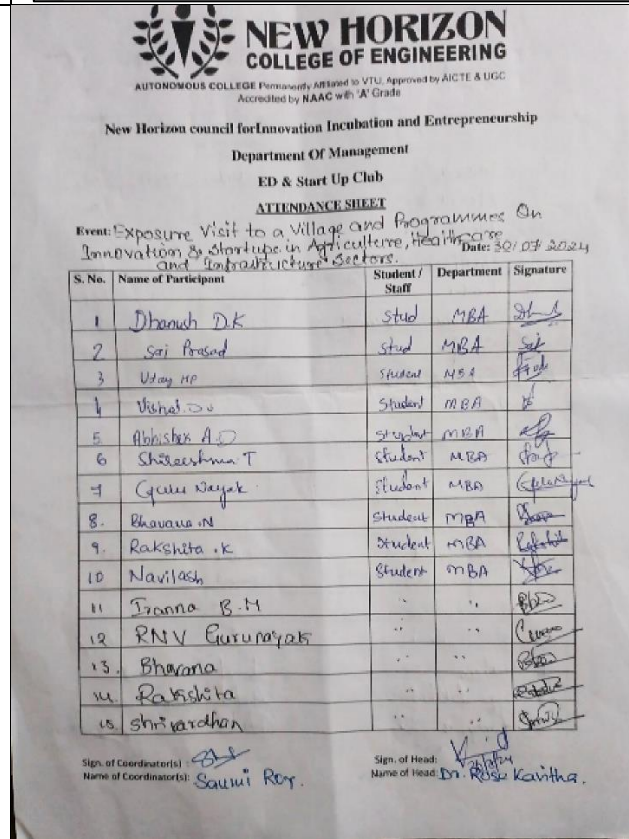 NEW HORIZON
COLLEGE OF ENGINEERING
AUTONOMOUS COLLEGE Permanently Affiliated to VTU, Approved by AICTE & UGC
Accredited by NAAC with 'A' Grade
New Horizon council forInnovation Incubation and Entrepreneurship
Department Of Management
ED & Start Up Club
ATTENDANCE SHEET
Event: Exposure Visit to a Village and Programmes On
Innovation & Startups in Agriculture, Healthcare Date: 30/07/2024
and Infrastructure Sectors.
S. No. Name of Participant Student / Staff Department Signature
1 Dhanush D.K Stud MBA
2 Sai Prasad Stud MBA Sai
3 Uday HP Student MBA
4 Vishal Student MBA
5 Abhishek A.D Student MBA
6 Shireeshma T Student MBA
7 Guru Nayak Student MBA
8. Bhavana .N Student MBA
9. Rakshita .K Student MBA Rakshita
10 Navilash Student MBA
11 Iranna B.M " "
12 RNV Gurunayak " "
13. Bhavana " "
14. Rakshita " "
15. Shrivardhan " "
Sign. of Coordinator(s) : Sign. of Head:
Name of Coordinator(s): Saumi Roy. Name of Head: Dr. Rose Kavitha.